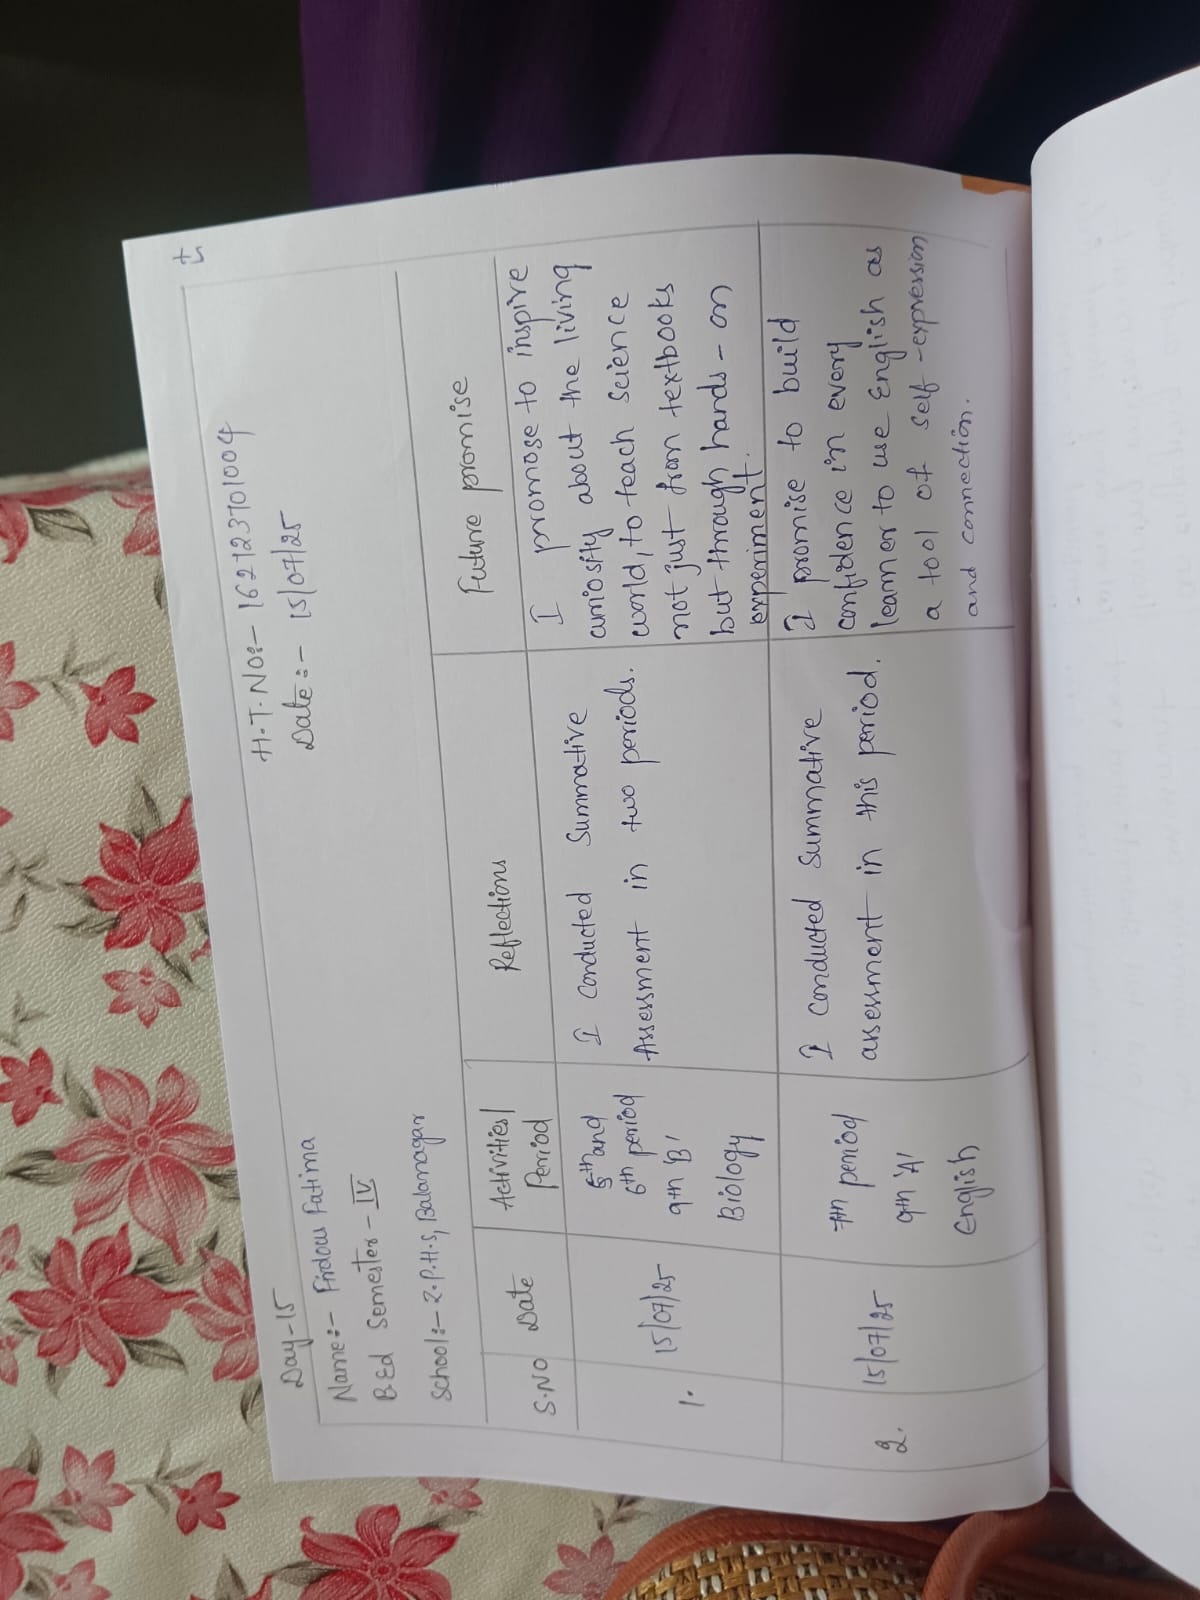 Day-15
H.T.NO:- 162123701004
Name:- Firdous Fatima
Date:- 15/07/25
B.Ed Semester - IV
School:- Z.P.H.S, Balanagar
S.NO Date Activities/ Period Reflections Future promise
1. 15/07/25
5th and
6th period
9th 'B'
Biology
I conducted Summative
Assessment in two periods.
I promose to inspire
curiosity about the living
world, to teach science
not just from textbooks
but through hands-on
experiment.
2. 15/07/25
7th period
9th 'A'
English
I conducted Summative
assessment in this period.
I promise to build
confidence in every
learner to use English as
a tool of self-expression
and connection.